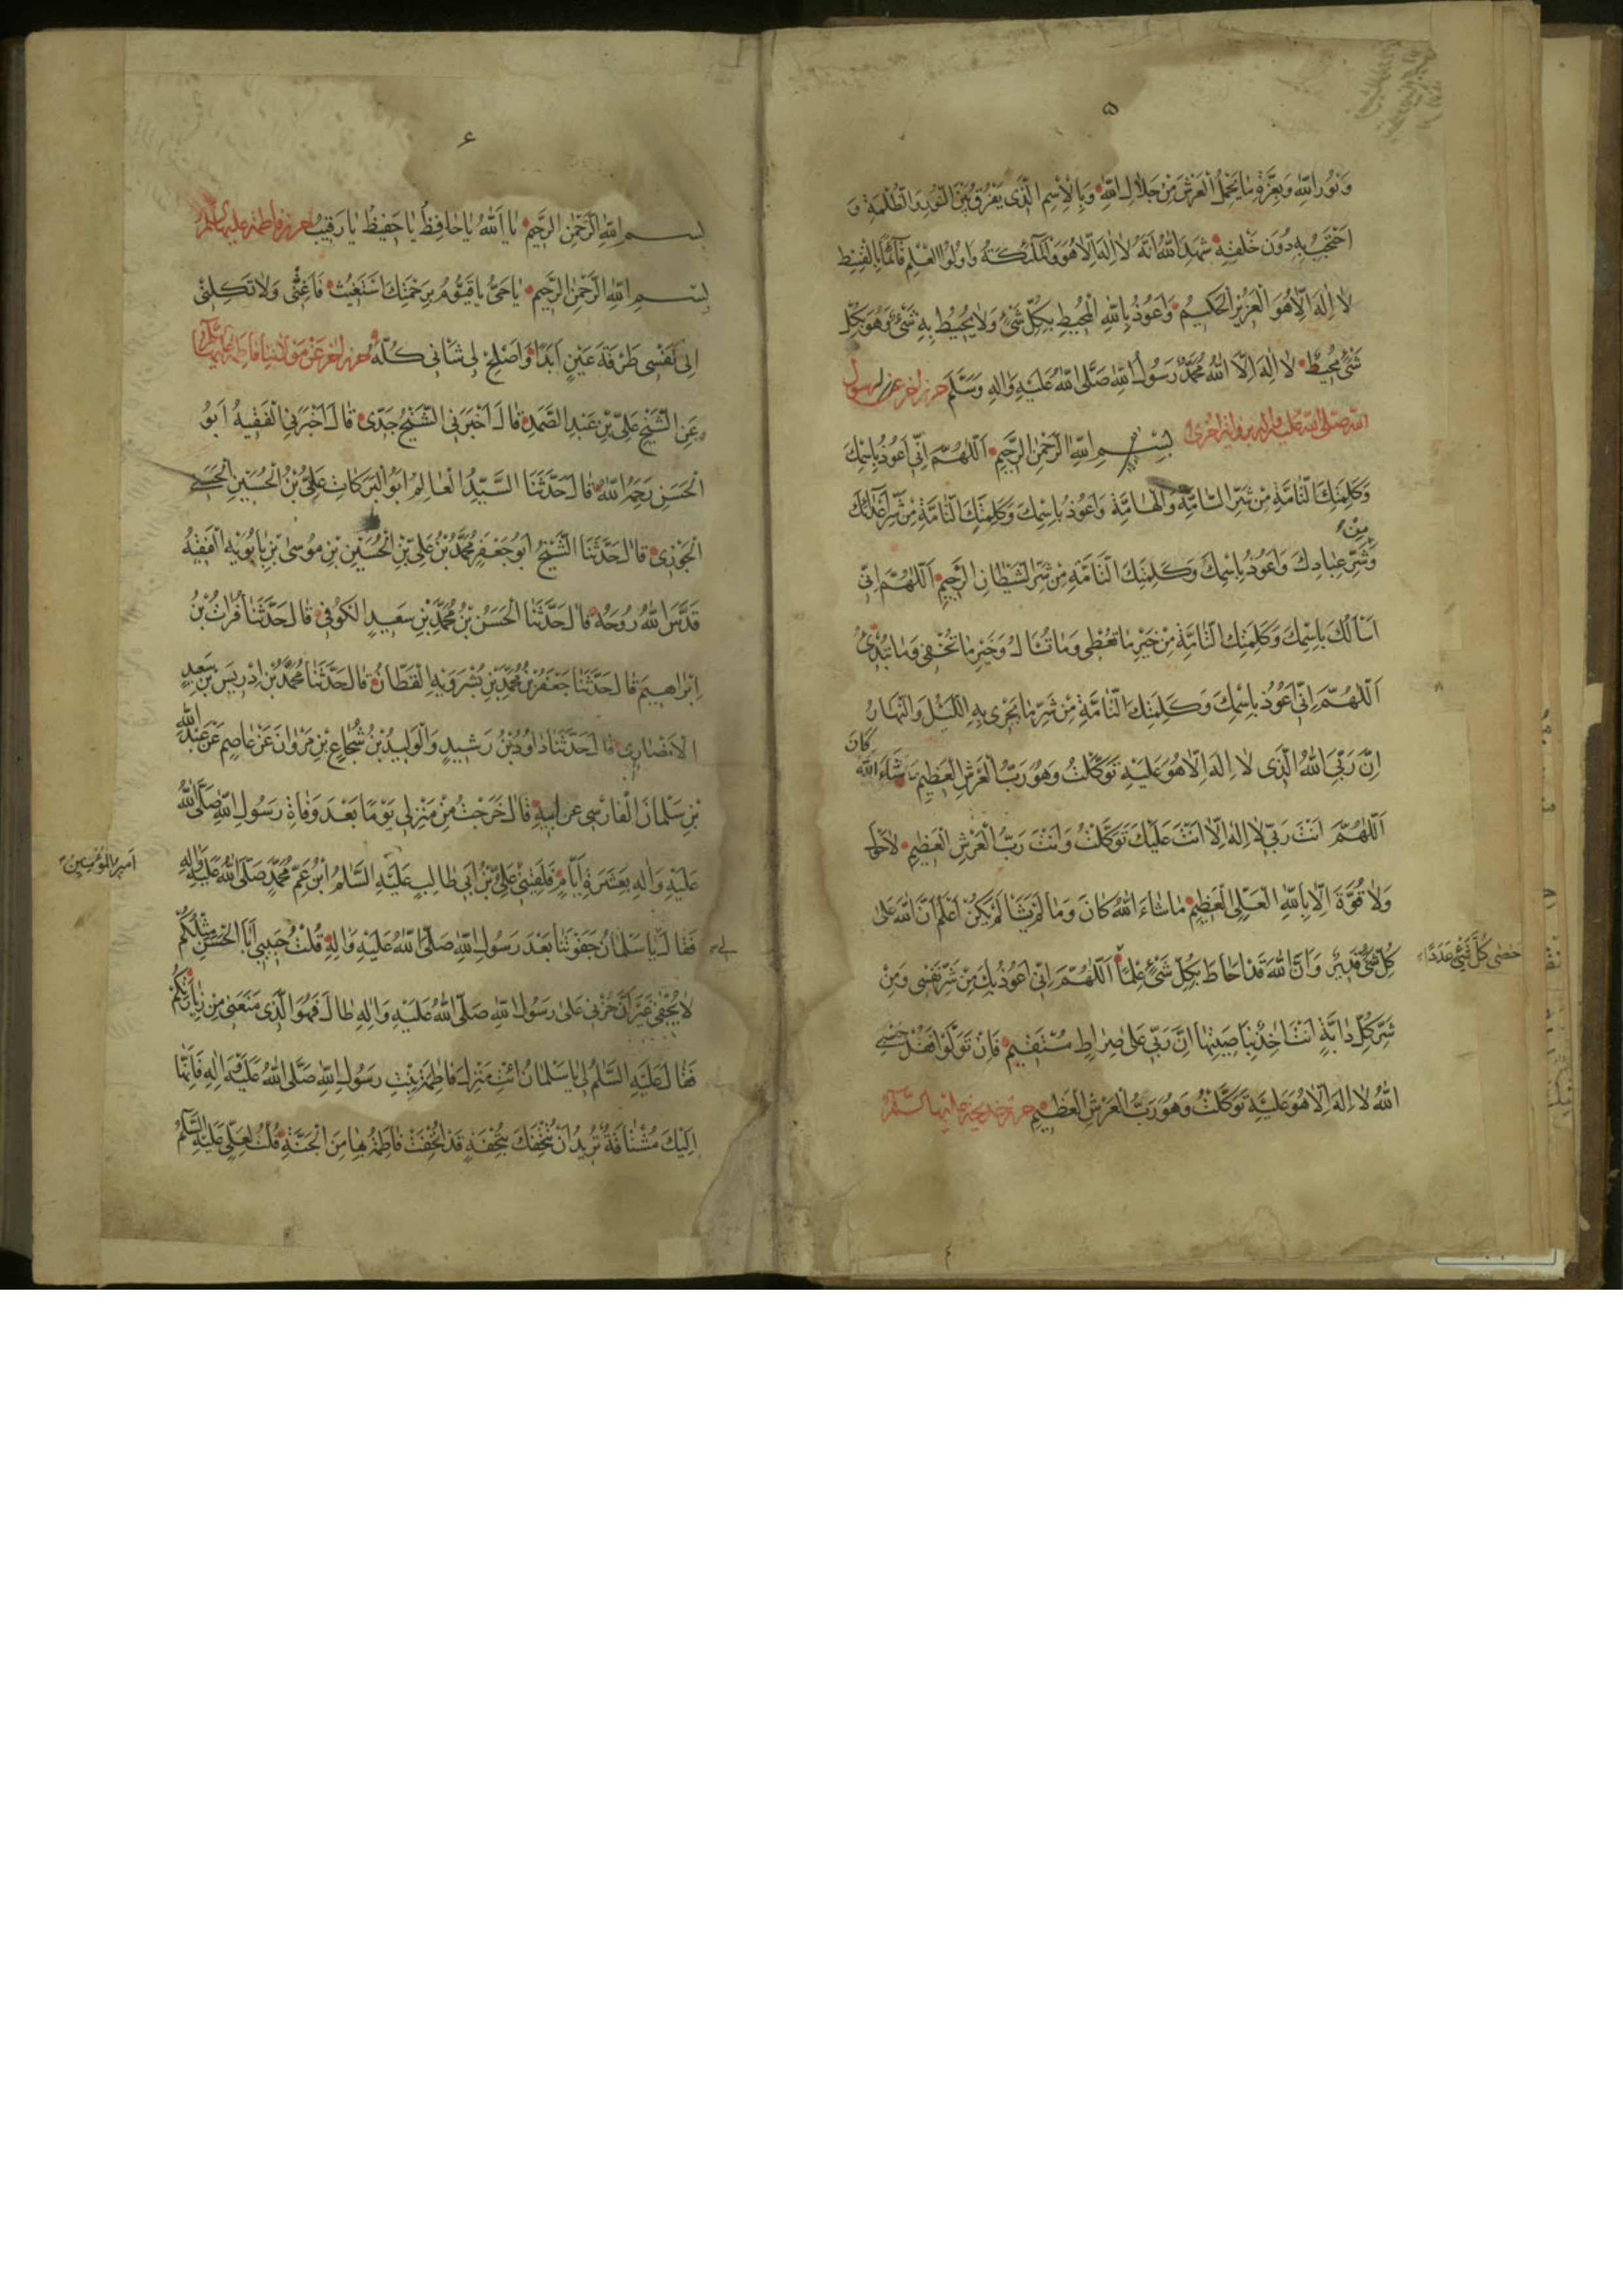 ۵
وَنُورِ اللهِ وَبِعِزَّةِ مَا يَحْمِلُ الْعَرْشَ مِنْ جَلَالِ اللهِ وَبِالْاِسْمِ الَّذِي يَفْرُقُ بَيْنَ النُّورِ وَالظُّلْمَةِ وَ
احْتَجَبَ بِهِ دُونَ خَلْقِهِ شَهِدَ اللهُ اَنَّهُ لَا اِلٰهَ اِلَّا هُوَ وَالْمَلٰٓئِكَةُ وَاُولُوا الْعِلْمِ قَآئِمًا بِالْقِسْطِ
لَا اِلٰهَ اِلَّا هُوَ الْعَزِيزُ الْحَكِيمُ وَاَعُوذُ بِاللهِ الْمُحِيطِ بِكُلِّ شَيْءٍ وَلَا يُحِيطُ بِهِ شَيْءٌ وَهُوَ بِكُلِّ
شَيْءٍ مُحِيطٌ لَا اِلٰهَ اِلَّا اللهُ مُحَمَّدٌ رَسُولُ اللهِ صَلَّى اللهُ عَلَيْهِ وَاٰلِهِ وَسَلَّمَ حرز اخر عن رسول
الله صلى الله عليه واله برواية اخرى بِسْمِ اللهِ الرَّحْمٰنِ الرَّحِيمِ اَللّٰهُمَّ اِنِّي اَعُوذُ بِاسْمِكَ
وَكَلِمَتِكَ التَّامَّةِ مِنْ شَرِّ السَّامَّةِ وَالْهَامَّةِ وَاَعُوذُ بِاسْمِكَ وَكَلِمَتِكَ التَّامَّةِ مِنْ شَرِّ عَذَابِكَ
مِنْ
وَشَرِّ عِبَادِكَ وَاَعُوذُ بِاسْمِكَ وَكَلِمَتِكَ التَّامَّةِ مِنْ شَرِّ الشَّيْطَانِ الرَّجِيمِ اَللّٰهُمَّ اِنِّي
اَسْاَلُكَ بِاسْمِكَ وَكَلِمَتِكَ التَّامَّةِ مِنْ خَيْرِ مَا تُعْطِي وَمَا تُسْاَلُ وَخَيْرِ مَا تُخْفِي وَمَا تُبْدِي
اَللّٰهُمَّ اِنِّي اَعُوذُ بِاسْمِكَ وَكَلِمَتِكَ التَّامَّةِ مِنْ شَرِّ مَا يَجْرِي بِهِ اللَّيْلُ وَالنَّهَارُ
اِنَّ رَبِّيَ اللهُ الَّذِي لَا اِلٰهَ اِلَّا هُوَ عَلَيْهِ تَوَكَّلْتُ وَهُوَ رَبُّ الْعَرْشِ الْعَظِيمِ مَا شَآءَ اللهُ كَانَ
اَللّٰهُمَّ اَنْتَ رَبِّي لَا اِلٰهَ اِلَّا اَنْتَ عَلَيْكَ تَوَكَّلْتُ وَاَنْتَ رَبُّ الْعَرْشِ الْعَظِيمِ لَا حَوْلَ
وَلَا قُوَّةَ اِلَّا بِاللهِ الْعَلِيِّ الْعَظِيمِ مَا شَاءَ اللهُ كَانَ وَمَا لَمْ يَشَأْ لَمْ يَكُنْ اَعْلَمُ اَنَّ اللهَ عَلٰى
كُلِّ شَيْءٍ قَدِيرٌ وَاَنَّ اللهَ قَدْ اَحَاطَ بِكُلِّ شَيْءٍ عِلْمًا اَللّٰهُمَّ اِنِّي اَعُوذُ بِكَ مِنْ شَرِّ نَفْسِي وَمِنْ
كُلَّ شَيْءٍ عَدَدًا
شَرِّ كُلِّ دَابَّةٍ اَنْتَ اٰخِذٌ بِنَاصِيَتِهَا اِنَّ رَبِّي عَلٰى صِرَاطٍ مُسْتَقِيمٍ فَاِنْ تَوَلَّوْا فَقُلْ حَسْبِيَ
اللهُ لَا اِلٰهَ اِلَّا هُوَ عَلَيْهِ تَوَكَّلْتُ وَهُوَ رَبُّ الْعَرْشِ الْعَظِيمِ حرز خديجة عليها السلام
۶
بِسْمِ اللهِ الرَّحْمٰنِ الرَّحِيمِ يَا اَللهُ يَا حَافِظُ يَا حَفِيظُ يَا رَقِيبُ حرز فاطمة عليها السلم
بِسْمِ اللهِ الرَّحْمٰنِ الرَّحِيمِ يَا حَيُّ يَا قَيُّومُ بِرَحْمَتِكَ اَسْتَغِيثُ فَاَغِثْنِي وَلَا تَكِلْنِي
اِلٰى نَفْسِي طَرْفَةَ عَيْنٍ اَبَدًا وَاَصْلِحْ لِي شَانِي كُلَّهُ حرز اخر عن مولاتنا فاطمة عليها السلم
عَنِ الشَّيْخِ عَلِيِّ بْنِ عَبْدِ الصَّمَدِ قَالَ اَخْبَرَنِي الشَّيْخُ جَدِّي قَالَ اَخْبَرَنِي الْفَقِيهُ اَبُو
الْحَسَنِ رَحِمَهُ اللهُ قَالَ حَدَّثَنَا السَّيِّدُ الْعَالِمُ اَبُو الْبَرَكَاتِ عَلِيُّ بْنُ الْحُسَيْنِ الْحَسَنِيُّ
الْجَوْزِي قَالَ حَدَّثَنَا الشَّيْخُ اَبُو جَعْفَرٍ مُحَمَّدُ بْنُ عَلِيِّ بْنِ الْحُسَيْنِ بْنِ مُوسَى بْنِ بَابُوَيْهِ الْفَقِيهُ
قَدَّسَ اللهُ رُوحَهُ قَالَ حَدَّثَنَا الْحَسَنُ بْنُ مُحَمَّدِ بْنِ سَعِيدٍ الْكُوفِي قَالَ حَدَّثَنَا فُرَاتُ بْنُ
اِبْرَاهِيمَ قَالَ حَدَّثَنَا جَعْفَرُ بْنُ مُحَمَّدِ بْنِ بُشْرَوَيْهِ الْقَطَّانُ قَالَ حَدَّثَنَا مُحَمَّدُ بْنُ اِدْرِيسَ بْنِ سَعِيدٍ
الْاَنْصَارِي قَالَ حَدَّثَنَا دَاوُدُ بْنُ رَشِيدٍ وَالْوَلِيدُ بْنُ شُجَاعِ بْنِ مَرْوَانَ عَنْ عَاصِمٍ عَنْ عَبْدِ اللهِ
بْنِ سَلْمَانَ الْفَارْسِي عَنْ اَبِيهِ قَالَ خَرَجْتُ مِنْ مَنْزِلِي يَوْمًا بَعْدَ وَفَاةِ رَسُولِ اللهِ صَلَّى اللهُ
عَلَيْهِ وَاٰلِهِ بِعَشَرَةِ اَيَّامٍ فَلَقِيَنِي عَلِيُّ بْنُ اَبِي طَالِبٍ عَلَيْهِ السَّلَامُ ابْنُ عَمِّ مُحَمَّدٍ صَلَّى اللهُ عَلَيْهِ وَاٰلِهِ
امير المؤمنين
فَقَالَ يَا سَلْمَانُ جَفَوْتَنَا بَعْدَ رَسُولِ اللهِ صَلَّى اللهُ عَلَيْهِ وَاٰلِهِ قُلْتُ حَبِيبِي اَبَا الْحَسَنِ مِثْلُكُمْ
لِي
لَا يُجْفٰى غَيْرَ اَنَّ حُزْنِي عَلٰى رَسُولِ اللهِ صَلَّى اللهُ عَلَيْهِ وَاٰلِهِ طَالَ فَهُوَ الَّذِي مَنَعَنِي مِنْ زِيَارَتِكُمْ
فَقَالَ عَلَيْهِ السَّلَمُ لِي يَا سَلْمَانُ ائْتِ مَنْزِلَ فَاطِمَةَ بِنْتِ رَسُولِ اللهِ صَلَّى اللهُ عَلَيْهِ وَاٰلِهِ فَاِنَّهَا
اِلَيْكَ مُشْتَاقَةٌ تُرِيدُ اَنْ تُتْحِفَكَ بِتُحْفَةٍ قَدْ اُتْحِفَتْ فَاطِمَةُ بِهَا مِنَ الْجَنَّةِ قُلْتُ لِعَلِيٍّ عَلَيْهِ السَّلَمُ